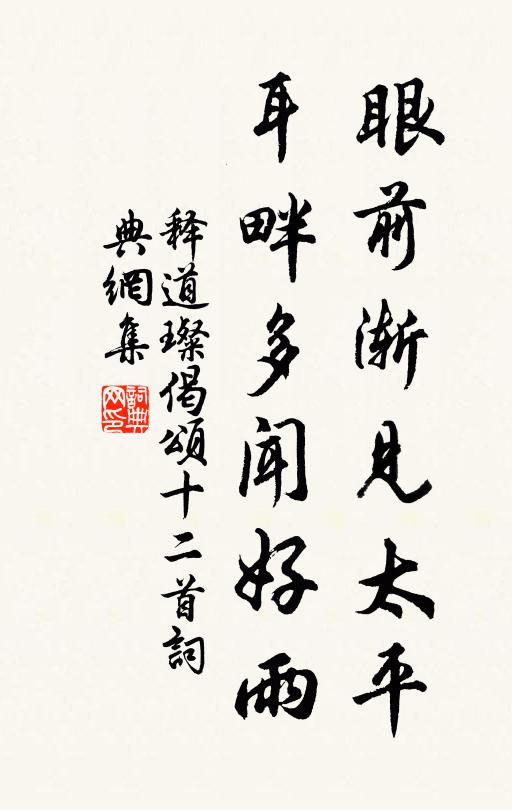 眼前漸見太平
耳畔多聞好雨
释道璨偈頌十二首詞
典網集
詞典网印